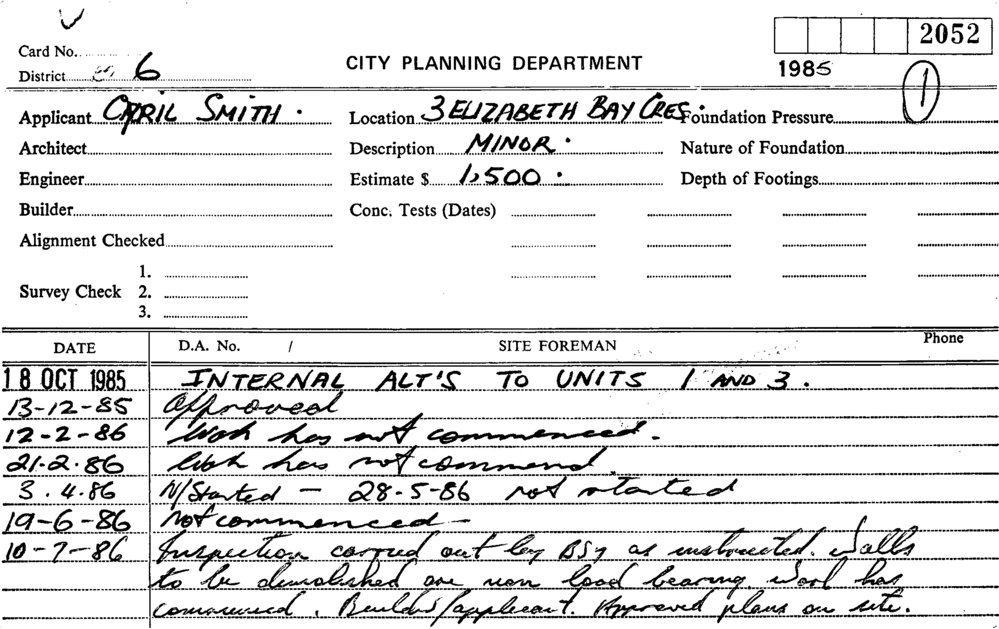 2052
Card No.
1985
CITY PLANNING DEPARTMENT
District 6
1
Applicant APRIL SMITH. Location 3 ELIZABETH BAY CRES. Foundation Pressure
Architect Description MINOR. Nature of Foundation
Engineer Estimate $ 1,500. Depth of Footings
Builder Conc. Tests (Dates)
Alignment Checked
1.
Survey Check 2.
3.
DATE D.A. No. / SITE FOREMAN Phone
18 OCT 1985 INTERNAL ALT'S TO UNITS 1 AND 3.
13-12-85 Approved
12-2-86 Work has not commenced.
21.2.86 Work has not commenced.
3.4.86 N/Started - 28-5-86 not started
19-6-86 Not commenced -
10-7-86 Inspection carried out by as instructed. Walls
to be demolished are non load bearing work has
commenced. Builder/applicant. Approved plans on site.